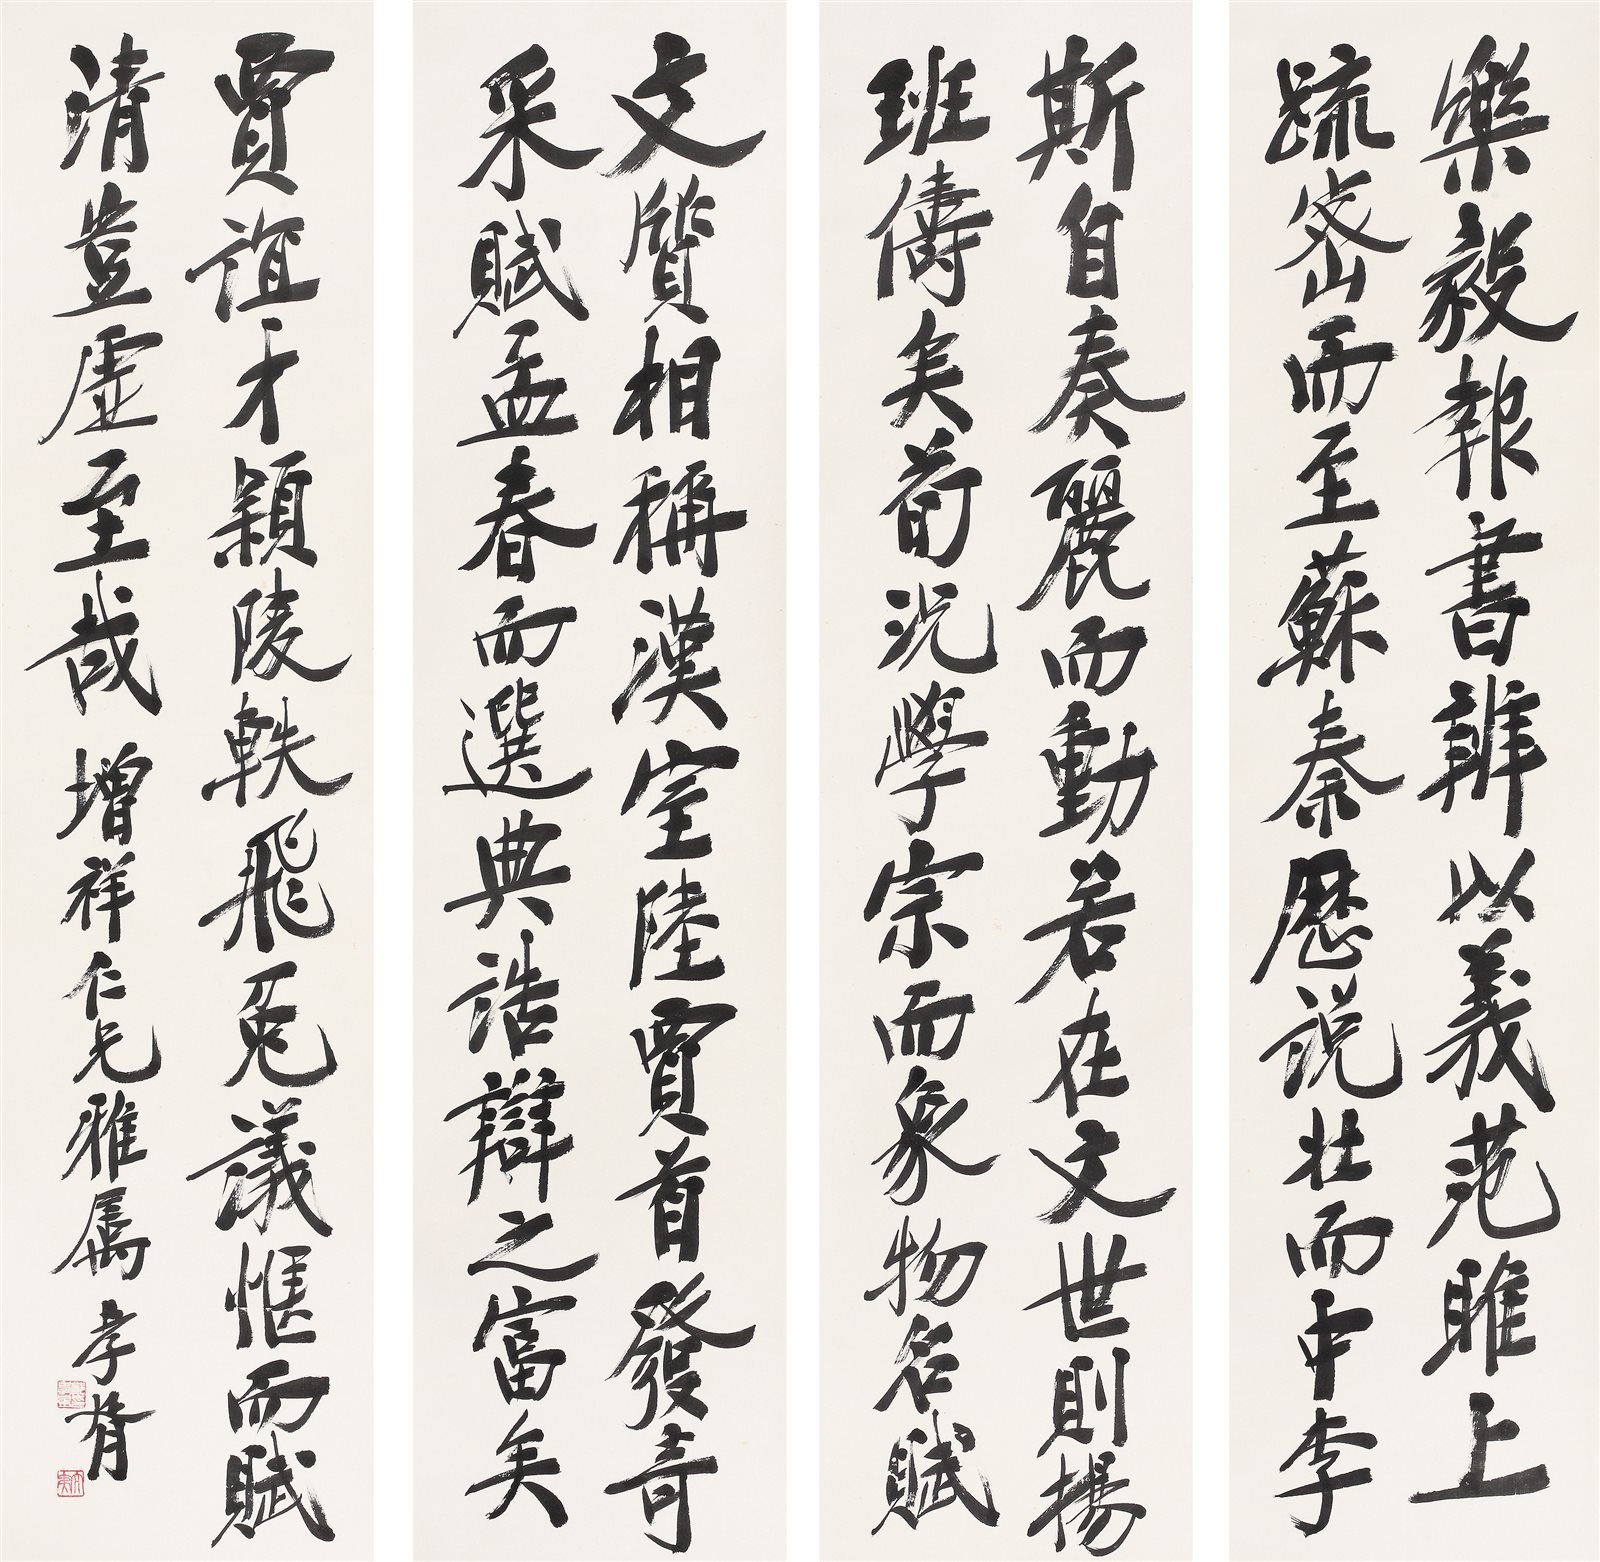 樂毅報書辨以義范雎上
疏密而至蘇秦歷説壯而中李
斯自奏麗而動若在文世則揚
班儔矣荀況學宗而象物名賦
文質相稱漢室陸賈首發奇
采賦孟春而選典誥辯之富矣
賈誼才穎陵軼飛兔議愜而賦
清豈虛至哉 增祥仁兄雅屬 孝胥